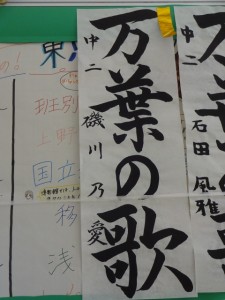 万葉の歌
中二 磯川 乃愛
万
中二 石田 風雅
東
班別
上野
国立
移
浅